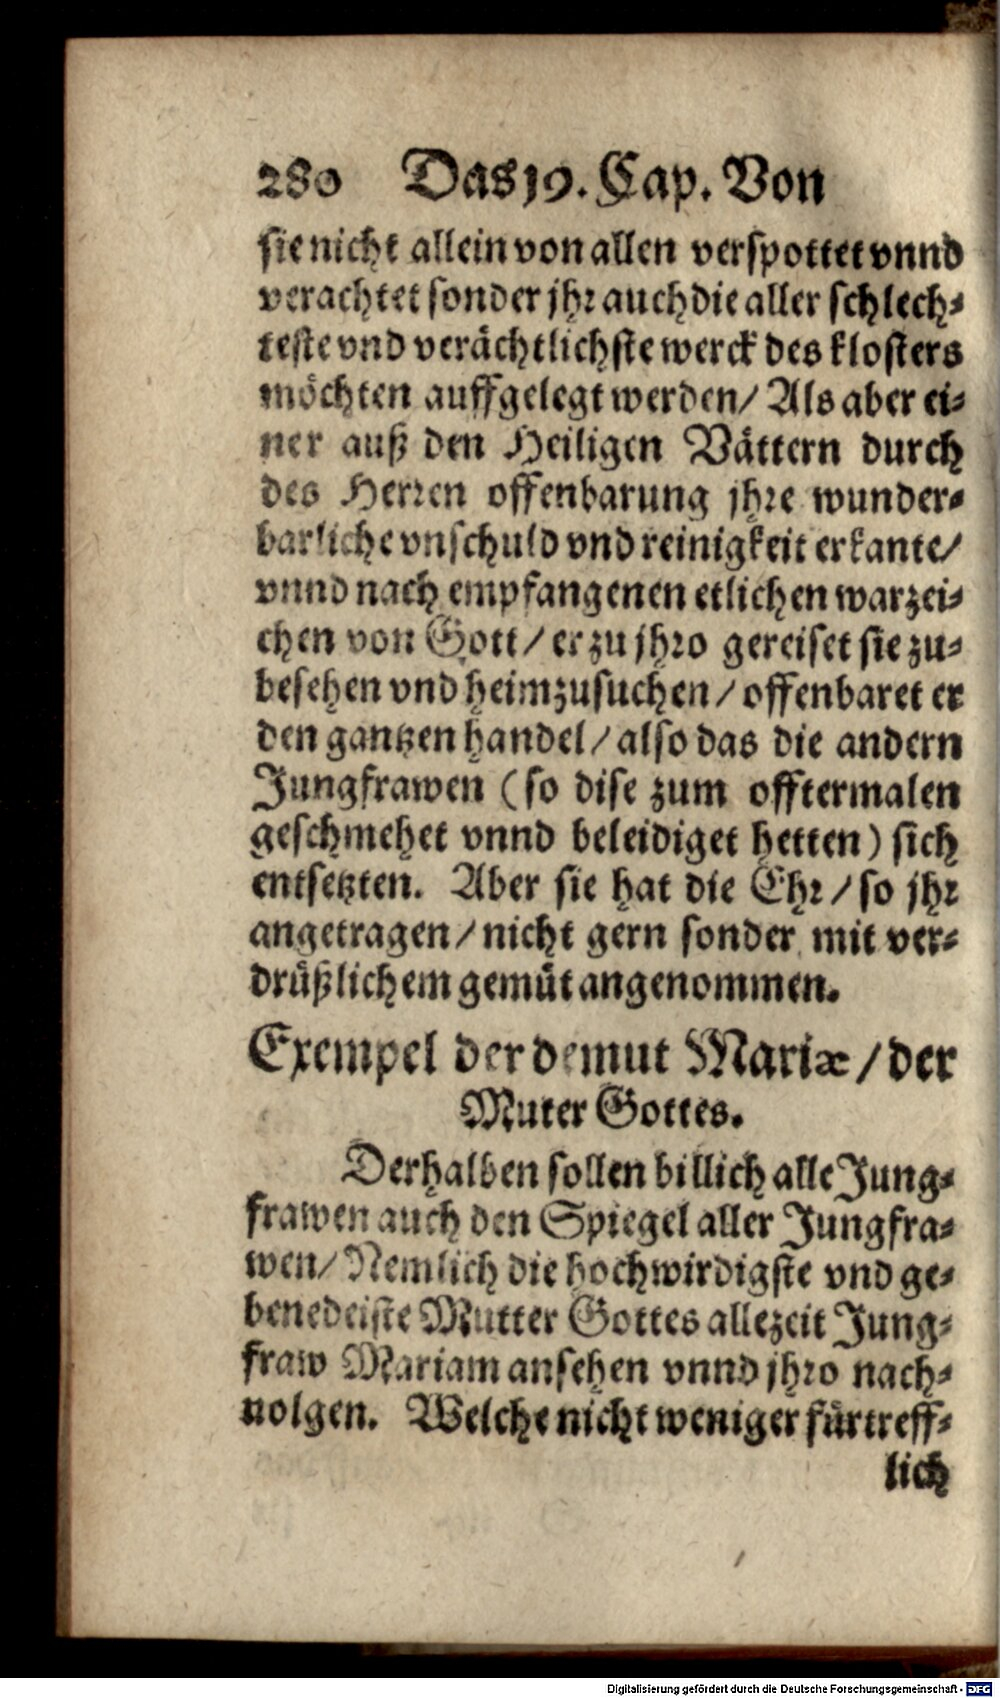 280 Das 19. Cap. Von
sie nicht allein von allen verspottet vnnd
verachtet sonder jhr auch die aller schlech-
teste vnd verächtlichste werck des klosters
möchten auffgelegt werden/ Als aber ei-
ner auß den Heiligen Vättern durch
des Herren offenbarung jhre wunder-
barliche vnschuld vnd reinigkeit erkante/
vnnd nach empfangenen etlichen warzei-
chen von Gott/ er zu jhro gereiset sie zu-
besehen vnd heimzusuchen/ offenbaret er
den gantzen handel/ also das die andern
Jungfrawen (so dise zum offtermalen
geschmehet vnnd beleidiget hetten) sich
entsetzten. Aber sie hat die Ehr/ so jhr
angetragen/ nicht gern sonder mit ver-
drüßlichem gemüt angenommen.
Exempel der demut Mariæ/ der
Muter Gottes.
Derhalben sollen billich alle Jung-
frawen auch den Spiegel aller Jungfra-
wen/ Nemlich die hochwirdigste vnd ge-
benedeiste Mutter Gottes allezeit Jung-
fraw Mariam ansehen vnnd jhro nach-
uolgen. Welche nicht weniger fürtreff-
lich
Digitalisierung gefördert durch die Deutsche Forschungsgemeinschaft - DFG